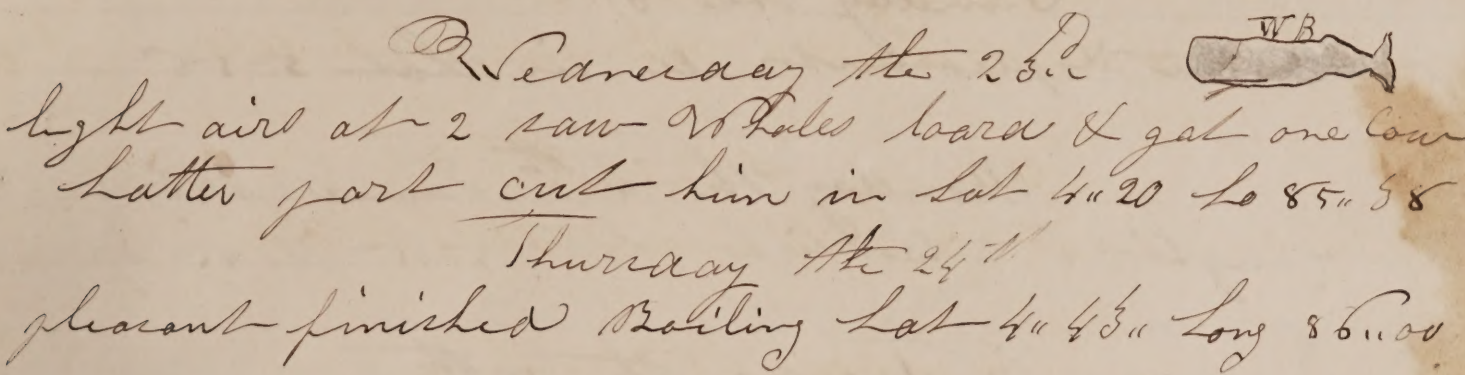 Wednesday the 23d
W B
light airs at 2 saw Whales loard & got one Cow
Latter part cut him in Lat 4"20 Lo 85"38
Thursday the 24th
pleasant finished Boiling Lat 4"43" Long 86"00